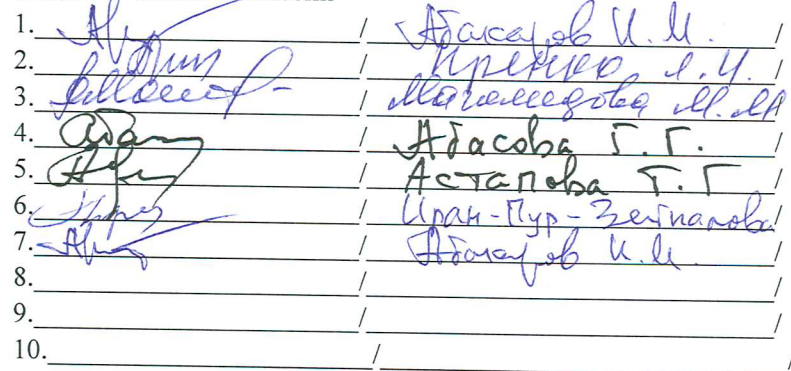 1. / Абакаров И.М. /
2. / Иренко Л.И. /
3. / Магомедова М.М /
4. / Абасова Г.Г. /
5. / Астапова Т.Г /
6. / Иран-Пур-Зейналова/
7. / Абакаров И.М. /
8. / /
9. / /
10. / /